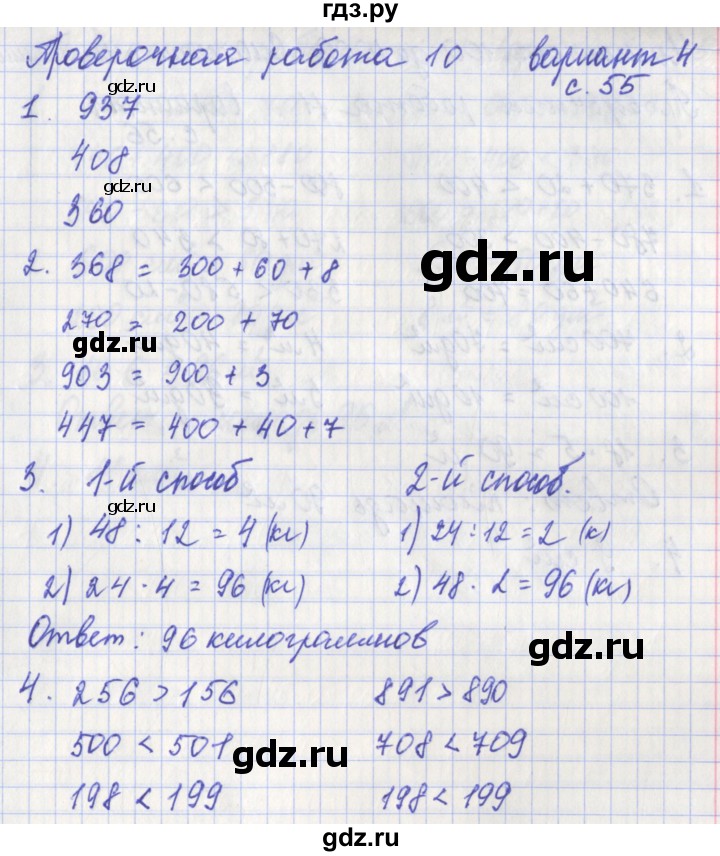 гдз.ру
Проверочная работа 10 вариант 4
с. 55
1. 937
408
360
2. 368 = 300 + 60 + 8
270 = 200 + 70
903 = 900 + 3
447 = 400 + 40 + 7
3. 1-й способ 2-й способ.
1) 48 : 12 = 4 (кг) 1) 24 : 12 = 2 (к)
2) 24 · 4 = 96 (кг) 2) 48 · 2 = 96 (кг)
Ответ: 96 килограммов
4. 256 > 156 891 > 890
500 < 501 708 < 709
198 < 199 198 < 199
gdz.ru
gdz.ru
gdz.ru
gdz.ru
gdz.ru
gdz.ru
gdz.ru
gdz.ru
gdz.ru
gdz.ru
gdz.ru